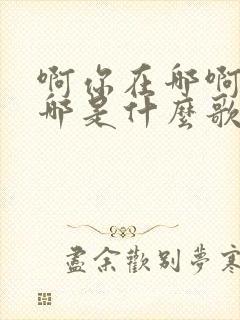 啊你在那啊
那是什麼歌
盡余歡別夢寒